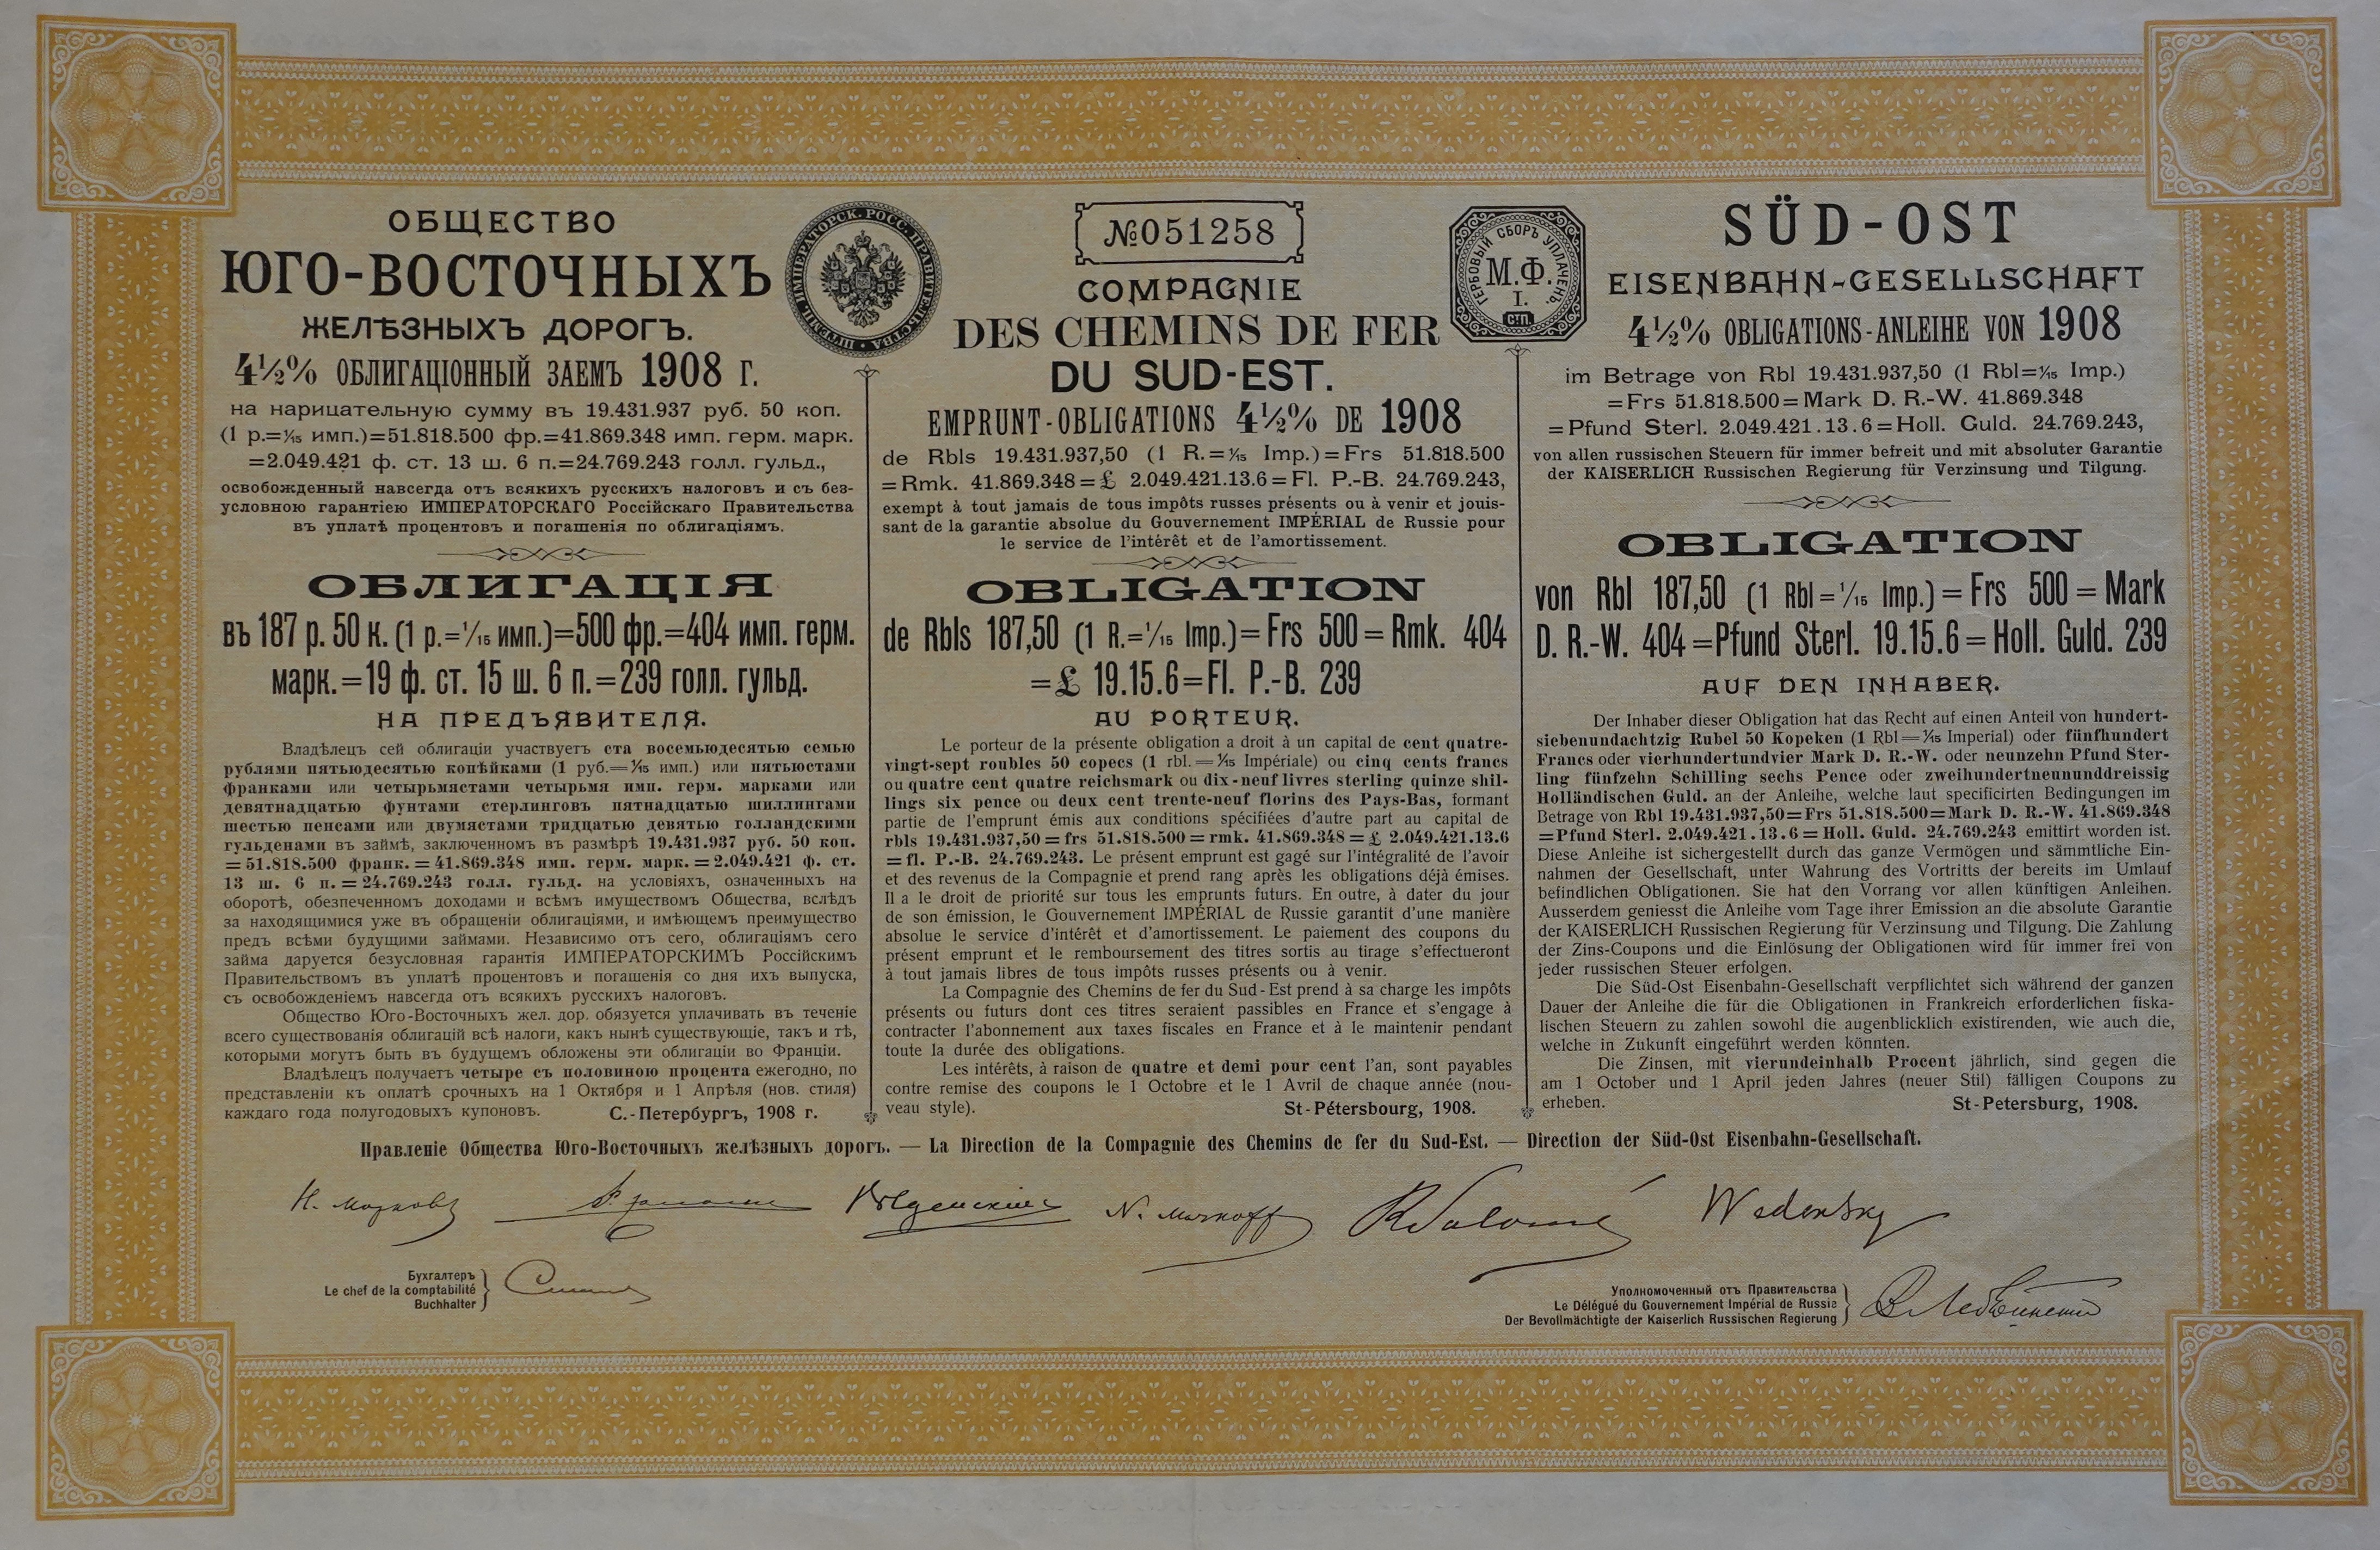 ОБЩЕСТВО
ЮГО-ВОСТОЧНЫХЪ
ЖЕЛѢЗНЫХЪ ДОРОГЪ.
4½% ОБЛИГАЦІОННЫЙ ЗАЕМЪ 1908 Г.
на нарицательную сумму въ 19.431.937 руб. 50 коп.
(1 р.=1/15 имп.)=51.818.500 фр.=41.869.348 имп. герм. марк.
=2.049.421 ф. ст. 13 ш. 6 п.=24.769.243 голл. гульд.,
освобожденный навсегда отъ всякихъ русскихъ налоговъ и съ без-
условною гарантіею ИМПЕРАТОРСКАГО Россійскаго Правительства
въ уплатѣ процентовъ и погашенія по облигаціямъ.
ОБЛИГАЦІЯ
въ 187 р. 50 к. (1 р.=1/15 имп.)=500 фр.=404 имп. герм.
марк.=19 ф. ст. 15 ш. 6 п.=239 голл. гульд.
НА ПРЕДЪЯВИТЕЛЯ.
Владѣлецъ сей облигаціи участвуетъ ста восемьюдесятью семью
рублями пятьюдесятью копѣйками (1 руб.=1/15 имп.) или пятьюстами
франками или четырьмястами четырьмя имп. герм. марками или
девятнадцатью фунтами стерлинговъ пятнадцатью шиллингами
шестью пенсами или двумястами тридцатью девятью голландскими
гульденами въ займѣ, заключенномъ въ размѣрѣ 19.431.937 руб. 50 коп.
=51.818.500 франк.=41.869.348 имп. герм. марк.=2.049.421 ф. ст.
13 ш. 6 п.=24.769.243 голл. гульд. на условіяхъ, означенныхъ на
оборотѣ, обезпеченномъ доходами и всѣмъ имуществомъ Общества, вслѣдъ
за находящимися уже въ обращеніи облигаціями, и имѣющемъ преимущество
предъ всѣми будущими займами. Независимо отъ сего, облигаціямъ сего
займа даруется безусловная гарантія ИМПЕРАТОРСКИМЪ Россійскимъ
Правительствомъ въ уплатѣ процентовъ и погашенія со дня ихъ выпуска,
съ освобожденіемъ навсегда отъ всякихъ русскихъ налоговъ.
Общество Юго-Восточныхъ жел. дор. обязуется уплачивать въ теченіе
всего существованія облигацій всѣ налоги, какъ нынѣ существующіе, такъ и тѣ,
которыми могутъ быть въ будущемъ обложены эти облигаціи во Франціи.
Владѣлецъ получаетъ четыре съ половиною процента ежегодно, по
представленіи къ оплатѣ срочныхъ на 1 Октября и 1 Апрѣля (нов. стиля)
каждаго года полугодовыхъ купоновъ. С.-Петербургъ, 1908 г.
ПЕЧАТЬ ИМПЕРАТОРСК. РОСС. ПРАВИТЕЛЬСТВА
№051258
COMPAGNIE
DES CHEMINS DE FER
DU SUD-EST.
EMPRUNT-OBLIGATIONS 4½% DE 1908
de Rbls 19.431.937,50 (1 R.=1/15 Imp.)=Frs 51.818.500
=Rmk. 41.869.348=£ 2.049.421.13.6=Fl. P.-B. 24.769.243,
exempt à tout jamais de tous impôts russes présents ou à venir et jouis-
sant de la garantie absolue du Gouvernement IMPÉRIAL de Russie pour
le service de l'intérêt et de l'amortissement.
OBLIGATION
de Rbls 187,50 (1 R.=1/15 Imp.)=Frs 500=Rmk. 404
=£ 19.15.6=Fl. P.-B. 239
AU PORTEUR.
Le porteur de la présente obligation a droit à un capital de cent quatre-
vingt-sept roubles 50 copecs (1 rbl.=1/15 Impériale) ou cinq cents francs
ou quatre cent quatre reichsmark ou dix-neuf livres sterling quinze shil-
lings six pence ou deux cent trente-neuf florins des Pays-Bas, formant
partie de l'emprunt émis aux conditions spécifiées d'autre part au capital de
rbls 19.431.937,50=frs 51.818.500=rmk. 41.869.348=£ 2.049.421.13.6
=fl. P.-B. 24.769.243. Le présent emprunt est gagé sur l'intégralité de l'avoir
et des revenus de la Compagnie et prend rang après les obligations déjà émises.
Il a le droit de priorité sur tous les emprunts futurs. En outre, à dater du jour
de son émission, le Gouvernement IMPÉRIAL de Russie garantit d'une manière
absolue le service d'intérêt et d'amortissement. Le paiement des coupons du
présent emprunt et le remboursement des titres sortis au tirage s'effectueront
à tout jamais libres de tous impôts russes présents ou à venir.
La Compagnie des Chemins de fer du Sud-Est prend à sa charge les impôts
présents ou futurs dont ces titres seraient passibles en France et s'engage à
contracter l'abonnement aux taxes fiscales en France et à le maintenir pendant
toute la durée des obligations.
Les intérêts, à raison de quatre et demi pour cent l'an, sont payables
contre remise des coupons le 1 Octobre et le 1 Avril de chaque année (nou-
veau style). St-Pétersbourg, 1908.
ГЕРБОВЫЙ СБОРЪ УПЛАЧЕНЪ.
М.Ф.
I.
СП.
SÜD-OST
EISENBAHN-GESELLSCHAFT
4½% OBLIGATIONS-ANLEIHE VON 1908
im Betrage von Rbl 19.431.937,50 (1 Rbl=1/15 Imp.)
=Frs 51.818.500=Mark D. R.-W. 41.869.348
=Pfund Sterl. 2.049.421.13.6=Holl. Guld. 24.769.243,
von allen russischen Steuern für immer befreit und mit absoluter Garantie
der KAISERLICH Russischen Regierung für Verzinsung und Tilgung.
OBLIGATION
von Rbl 187,50 (1 Rbl=1/15 Imp.)=Frs 500=Mark
D. R.-W. 404=Pfund Sterl. 19.15.6=Holl. Guld. 239
AUF DEN INHABER.
Der Inhaber dieser Obligation hat das Recht auf einen Anteil von hundert-
siebenundachtzig Rubel 50 Kopeken (1 Rbl=1/15 Imperial) oder fünfhundert
Francs oder vierhundertundvier Mark D. R.-W. oder neunzehn Pfund Ster-
ling fünfzehn Schilling sechs Pence oder zweihundertneununddreissig
Holländischen Guld. an der Anleihe, welche laut specificirten Bedingungen im
Betrage von Rbl 19.431.937,50=Frs 51.818.500=Mark D. R.-W. 41.869.348
=Pfund Sterl. 2.049.421.13.6=Holl. Guld. 24.769.243 emittirt worden ist.
Diese Anleihe ist sichergestellt durch das ganze Vermögen und sämmtliche Ein-
nahmen der Gesellschaft, unter Wahrung des Vortritts der bereits im Umlauf
befindlichen Obligationen. Sie hat den Vorrang vor allen künftigen Anleihen.
Ausserdem geniesst die Anleihe vom Tage ihrer Emission an die absolute Garantie
der KAISERLICH Russischen Regierung für Verzinsung und Tilgung. Die Zahlung
der Zins-Coupons und die Einlösung der Obligationen wird für immer frei von
jeder russischen Steuer erfolgen.
Die Süd-Ost Eisenbahn-Gesellschaft verpflichtet sich während der ganzen
Dauer der Anleihe die für die Obligationen in Frankreich erforderlichen fiska-
lischen Steuern zu zahlen sowohl die augenblicklich existirenden, wie auch die,
welche in Zukunft eingeführt werden könnten.
Die Zinsen, mit vierundeinhalb Procent jährlich, sind gegen die
am 1 October und 1 April jeden Jahres (neuer Stil) fälligen Coupons zu
erheben. St-Petersburg, 1908.
Правленіе Общества Юго-Восточныхъ желѣзныхъ дорогъ. — La Direction de la Compagnie des Chemins de fer du Sud-Est. — Direction der Süd-Ost Eisenbahn-Gesellschaft.
Бухгалтеръ
Le chef de la comptabilité
Buchhalter
Уполномоченный отъ Правительства
Le Délégué du Gouvernement Impérial de Russie
Der Bevollmächtigte der Kaiserlich Russischen Regierung